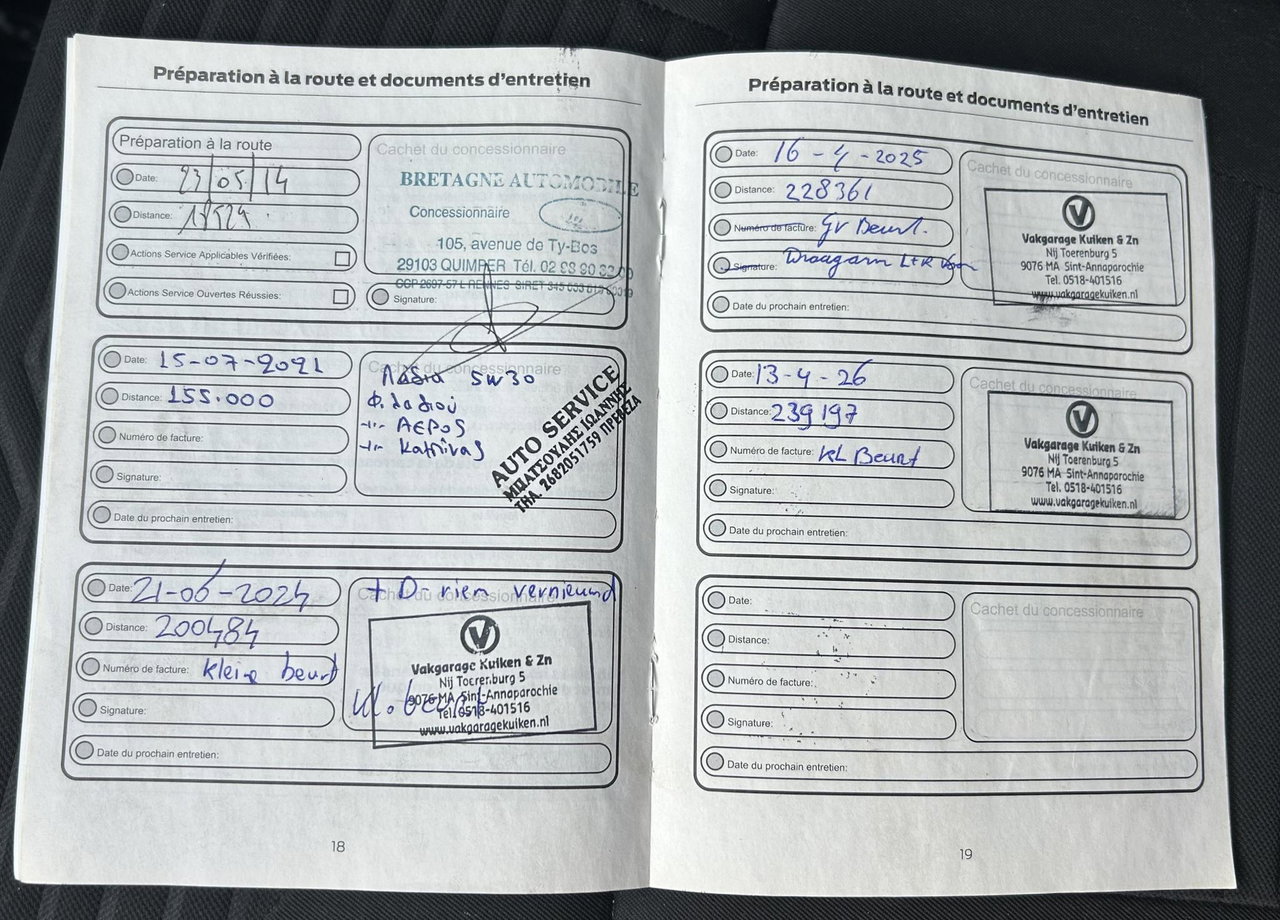 Préparation à la route et documents d'entretien
Préparation à la route
Date: 23/05/14
Distance:
Actions Service Applicables Vérifiées:
Actions Service Ouvertes Réussies:
Cachet du concessionnaire
BRETAGNE AUTOMOBILE
Concessionnaire
105, avenue de Ty-Bos
29103 QUIMPER Tél. 02 98 90
Signature:
Date: 15-07-2021
Distance: 155.000
Numéro de facture:
Signature:
Date du prochain entretien:
Cachet du concessionnaire
Λάδια 5W30
Φ. λαδιού
-〃- ΑΕΡΟΣ
-〃- Καμπίνας
AUTO SERVICE
ΜΠΑΤΣΟΥΛΗΣ ΙΩΑΝΝΗΣ
ΤΗΛ. 2682051759 ΠΡΕΒΕΖΑ
Date: 21-06-2024
Distance: 200484
Numéro de facture: kleine beurt
Signature:
Date du prochain entretien:
Cachet du concessionnaire
+ D-riem vernieuwd
Vakgarage Kuiken & Zn
Nij Toerenburg 5
9076 MA Sint-Annaparochie
Tel. 0518-401516
www.vakgaragekuiken.nl
kl. beurt
18
Préparation à la route et documents d'entretien
Date: 16-4-2025
Distance: 228361
Numéro de facture: Gr Beurt.
Signature: Draagarm L+R voor
Date du prochain entretien:
Cachet du concessionnaire
Vakgarage Kuiken & Zn
Nij Toerenburg 5
9076 MA Sint-Annaparochie
Tel. 0518-401516
www.vakgaragekuiken.nl
Date: 13-4-26
Distance: 239197
Numéro de facture: KL Beurt
Signature:
Date du prochain entretien:
Cachet du concessionnaire
Vakgarage Kuiken & Zn
Nij Toerenburg 5
9076 MA Sint-Annaparochie
Tel. 0518-401516
www.vakgaragekuiken.nl
Date:
Distance:
Numéro de facture:
Signature:
Date du prochain entretien:
Cachet du concessionnaire
19